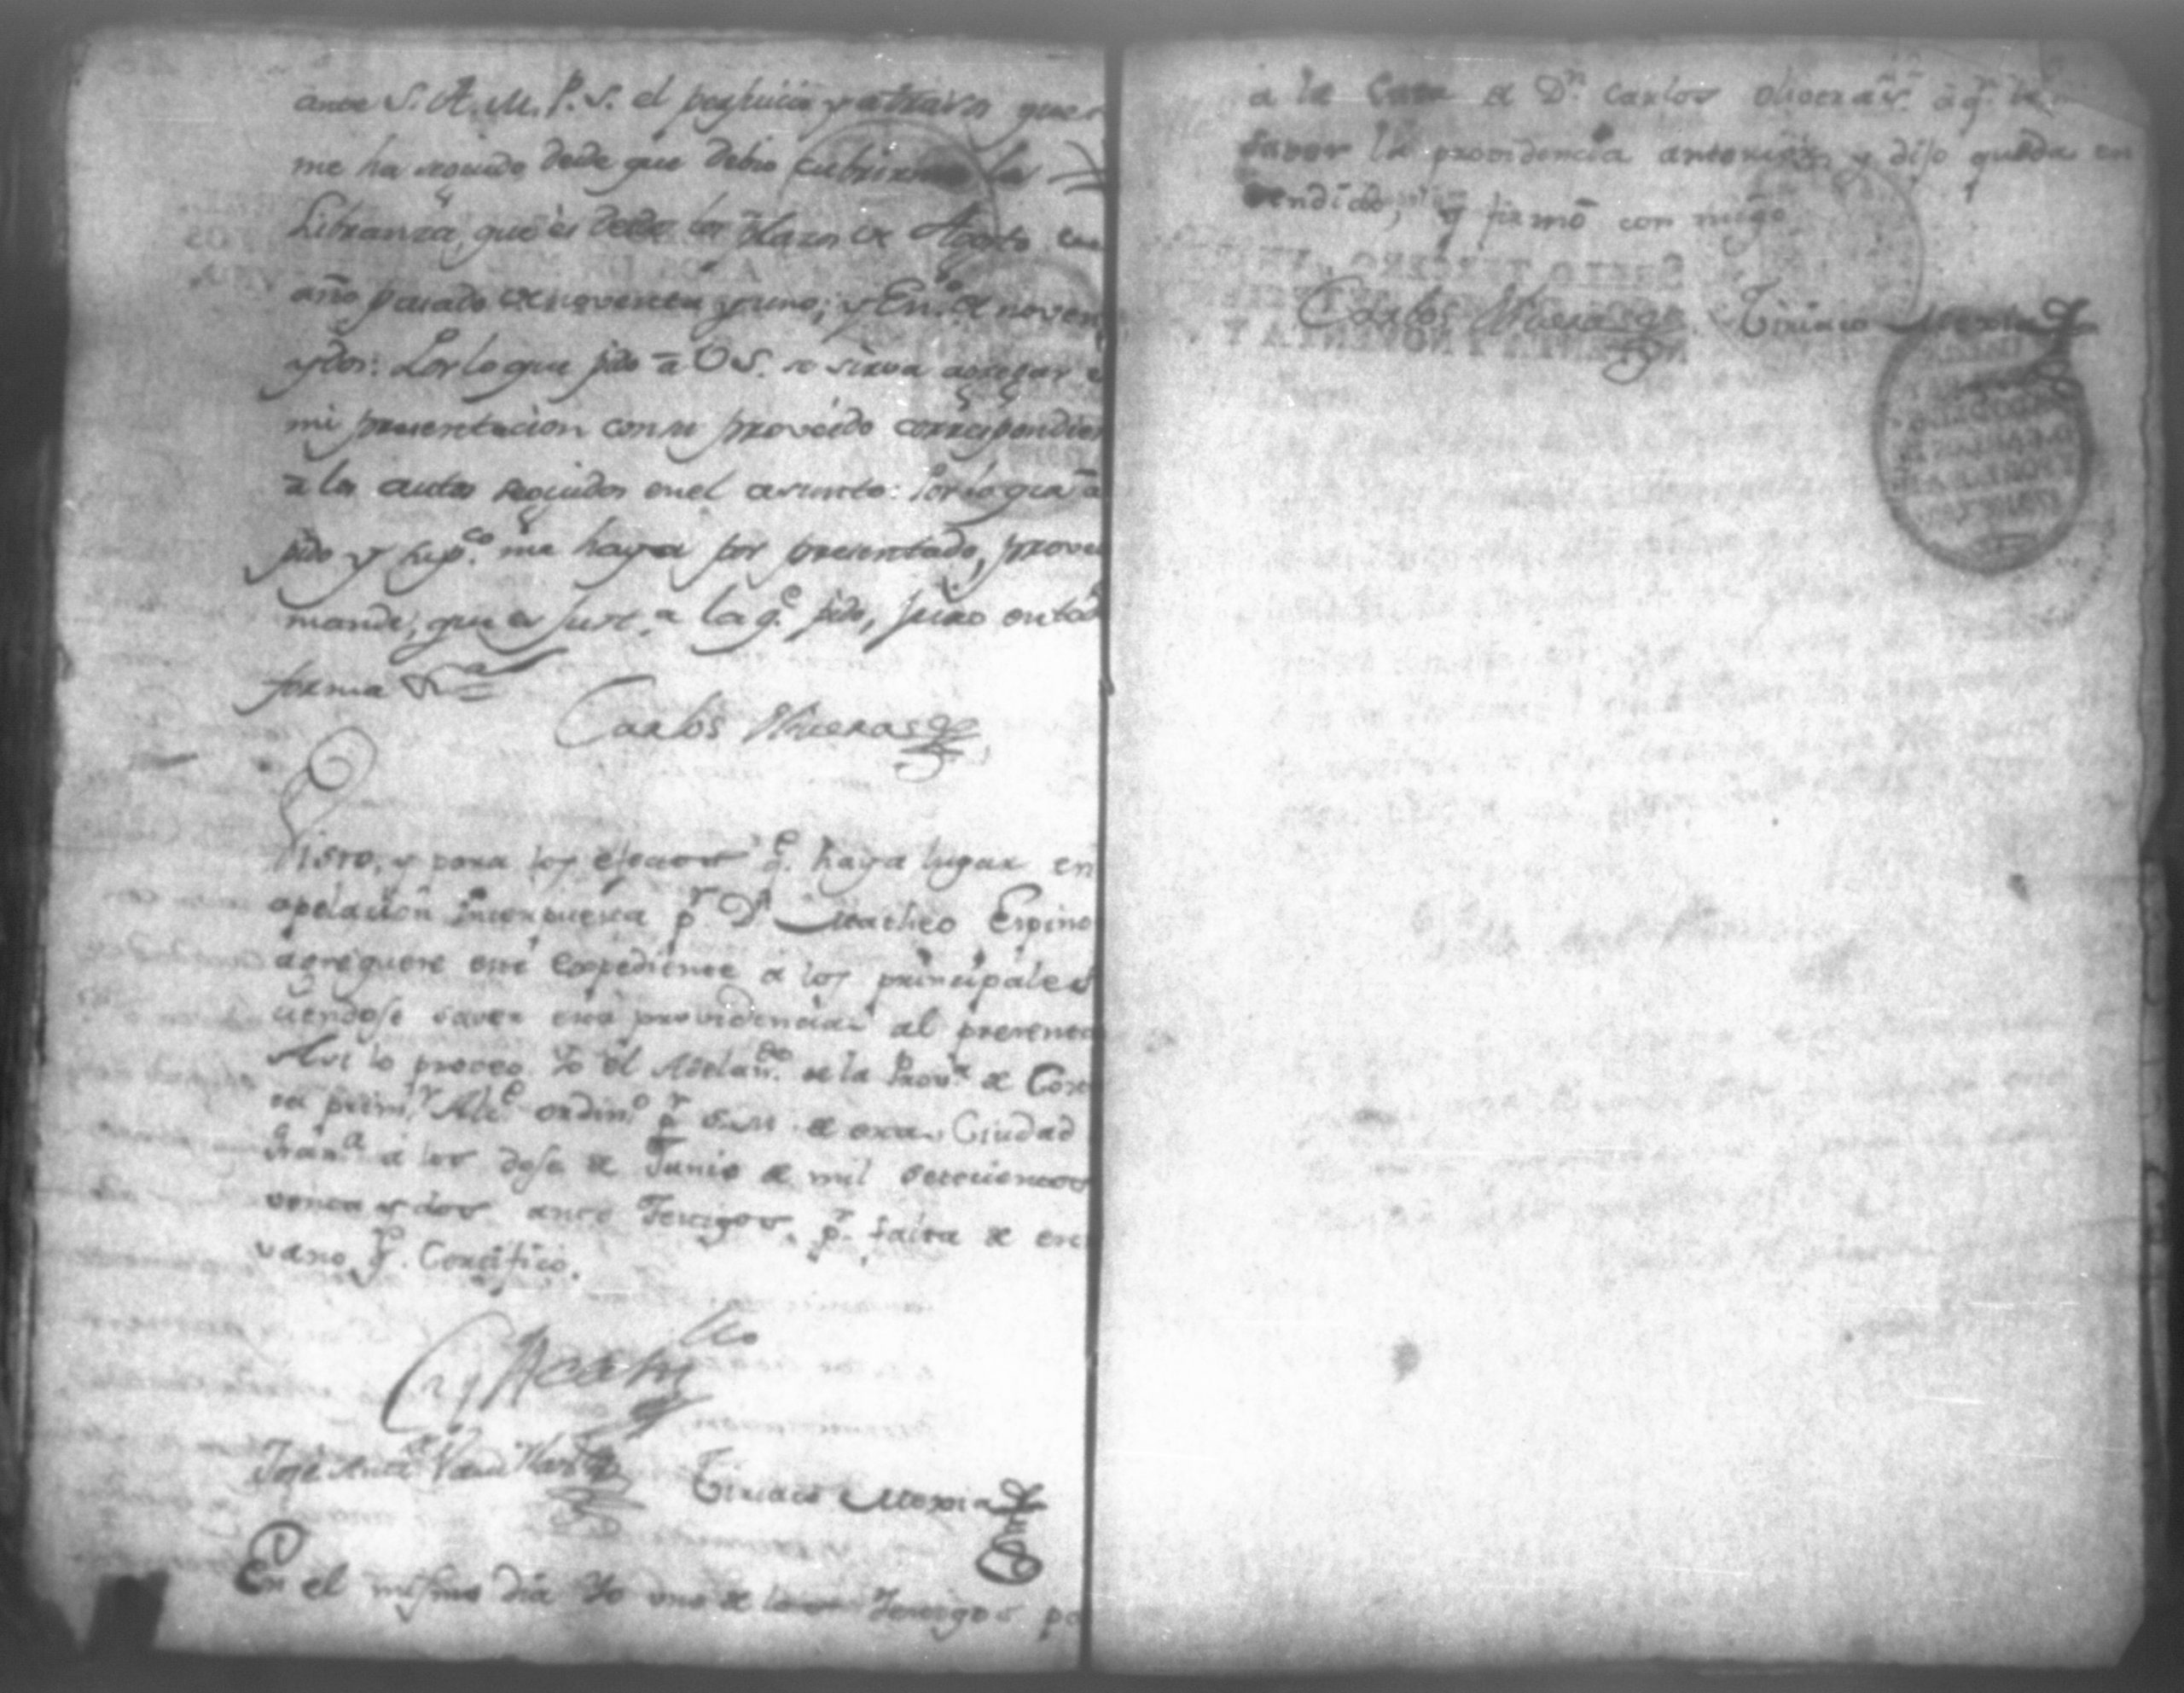 ante S. A. M. P. S. el perjuicio y atraso que
me ha seguido desde que debio cubrirme la
Libranza, que es desde los plazos de Agosto
año pasado de noventa y uno; y En.o de noven
y dos: Por lo que pido a V S. se sirva agregar
mi presentacion con su proveido correspondien
a los autos seguidos en el asunto: Por lo que a
pido y sup.co me haya por presentado, provea
mande, que es just.a la q.e pido, juro en lo
forma &.a
Carlos Oliveras
Visto, y para los efectos q.e haya lugar en
apelacion interpuesta p.r D.n Matheo Espino
agreguese este expediente a los principales
ciendose saver esta providencia al presente
Asi lo proveo Yo el Adelan.do de la Prov.a de Cost
ca prim.r Alc.e ordin.o p.r S. M. de esta Ciudad
Gran.a a los dose de Junio de mil setecientos
venta y dos ante Testigos, p.r falta de escri
vano q.e Certifico.
José Ant.o
Ciriaco Mexia
En el mismo dia Yo uno de los Testigos pa
a la Casa de D.n Carlos Oliveras a q.n le
saver la providencia anterior, y dijo queda en
tendido, y firmó con migo
Carlos Oliveras Ciriaco Mexia
SELLO TERCERO, VN
NOVENTA Y